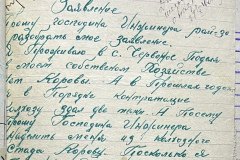 Заявление
прошу господина Инженера рай-за
разобрать мое заявление.
Я Проживаю в с. Червоное
имеет собственном Хозяйстве
Корови. А в Прошлая
в Порядке контрактации
здал два А Поєтому
Прошу Господина Инженера
наделить меня из колхозного
Стада Корову. Поскольку я